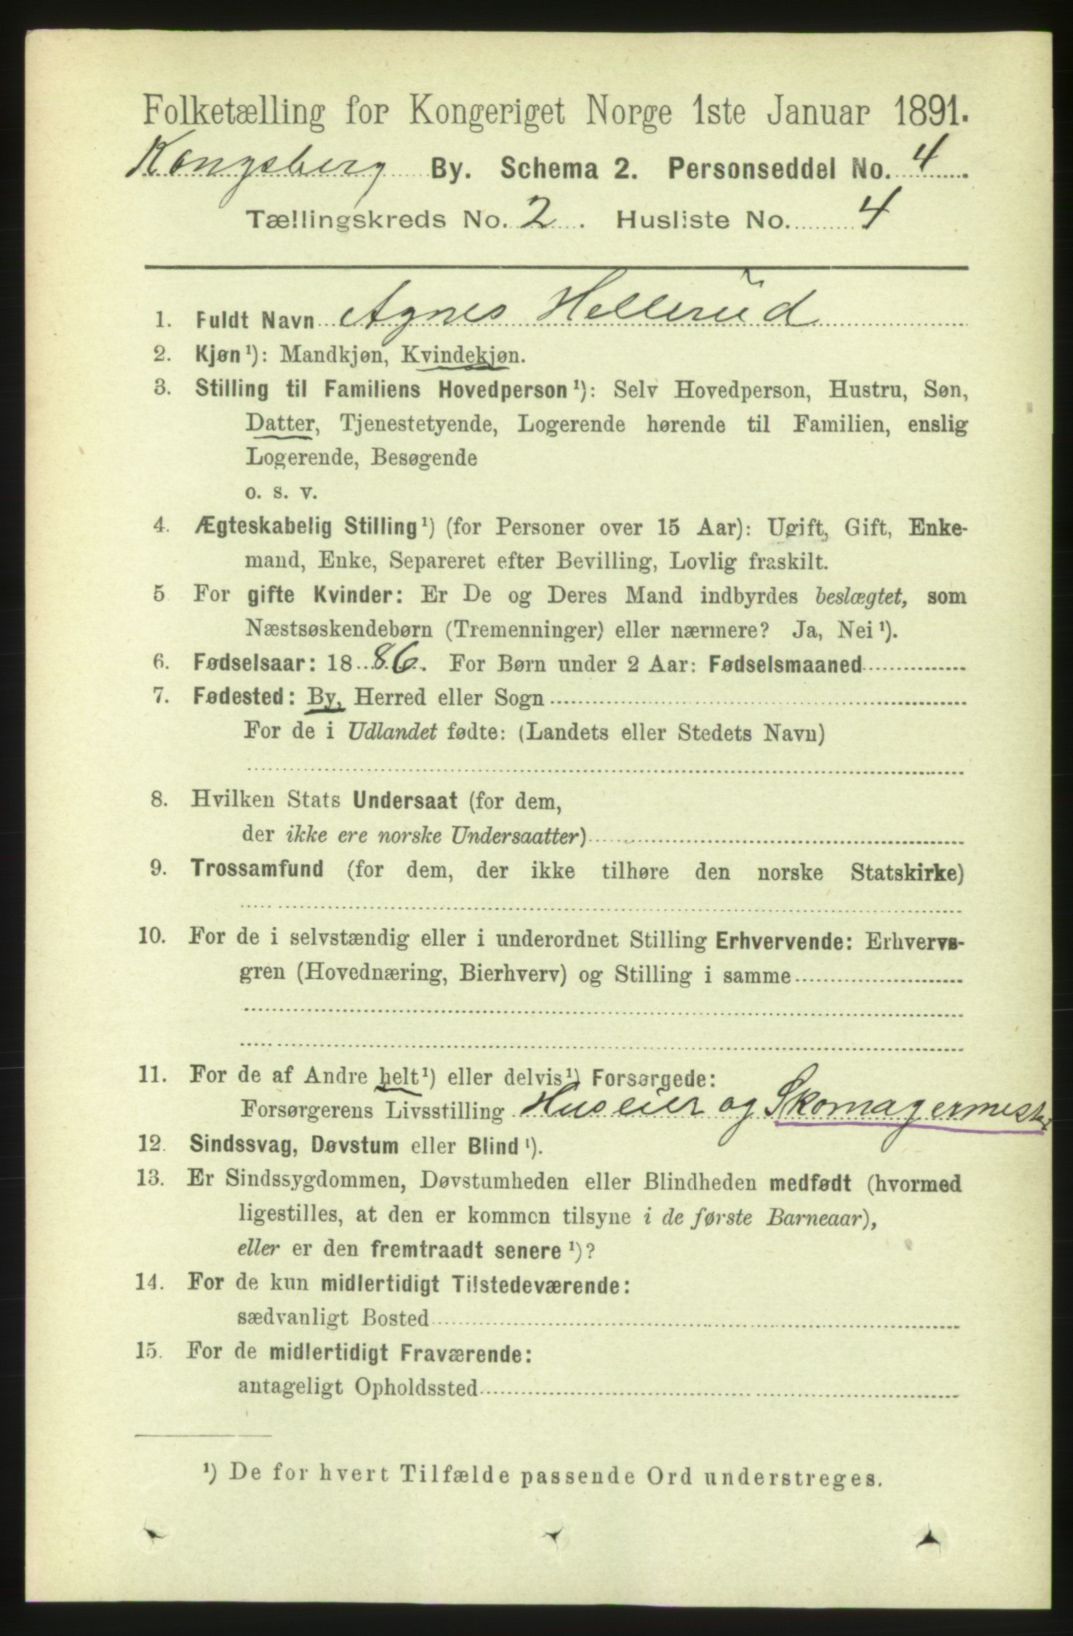 Folketælling for Kongeriget Norge 1ste Januar 1891.
Kongsberg By. Schema 2. Personseddel No. 4.
Tællingskreds No. 2. Husliste No. 4
1. Fuldt Navn Agnes Hellerud
2. Kjøn¹): Mandkjøn, Kvindekjøn.
3. Stilling til Familiens Hovedperson¹): Selv Hovedperson, Hustru, Søn,
Datter, Tjenestetyende, Logerende hørende til Familien, enslig
Logerende, Besøgende
o. s. v.
4. Ægteskabelig Stilling¹) (for Personer over 15 Aar): Ugift, Gift, Enke-
mand, Enke, Separeret efter Bevilling, Lovlig fraskilt.
5 For gifte Kvinder: Er De og Deres Mand indbyrdes beslægtet, som
Næstsøskendebørn (Tremenninger) eller nærmere? Ja, Nei¹).
6. Fødselsaar: 1886. For Børn under 2 Aar: Fødselsmaaned
7. Fødested: By, Herred eller Sogn
For de i Udlandet fødte: (Landets eller Stedets Navn)
8. Hvilken Stats Undersaat (for dem,
der ikke ere norske Undersaatter)
9. Trossamfund (for dem, der ikke tilhøre den norske Statskirke)
10. For de i selvstændig eller i underordnet Stilling Erhvervende: Erhvervs-
gren (Hovednæring, Bierhverv) og Stilling i samme
11. For de af Andre helt¹) eller delvis¹) Forsørgede:
Forsørgerens Livsstilling Huseier og Skomagermester
12. Sindssvag, Døvstum eller Blind¹).
13. Er Sindssygdommen, Døvstumheden eller Blindheden medfødt (hvormed
ligestilles, at den er kommen tilsyne i de første Barneaar),
eller er den fremtraadt senere¹)?
14. For de kun midlertidigt Tilstedeværende:
sædvanligt Bosted
15. For de midlertidigt Fraværende:
antageligt Opholdssted
¹) De for hvert Tilfælde passende Ord understreges.